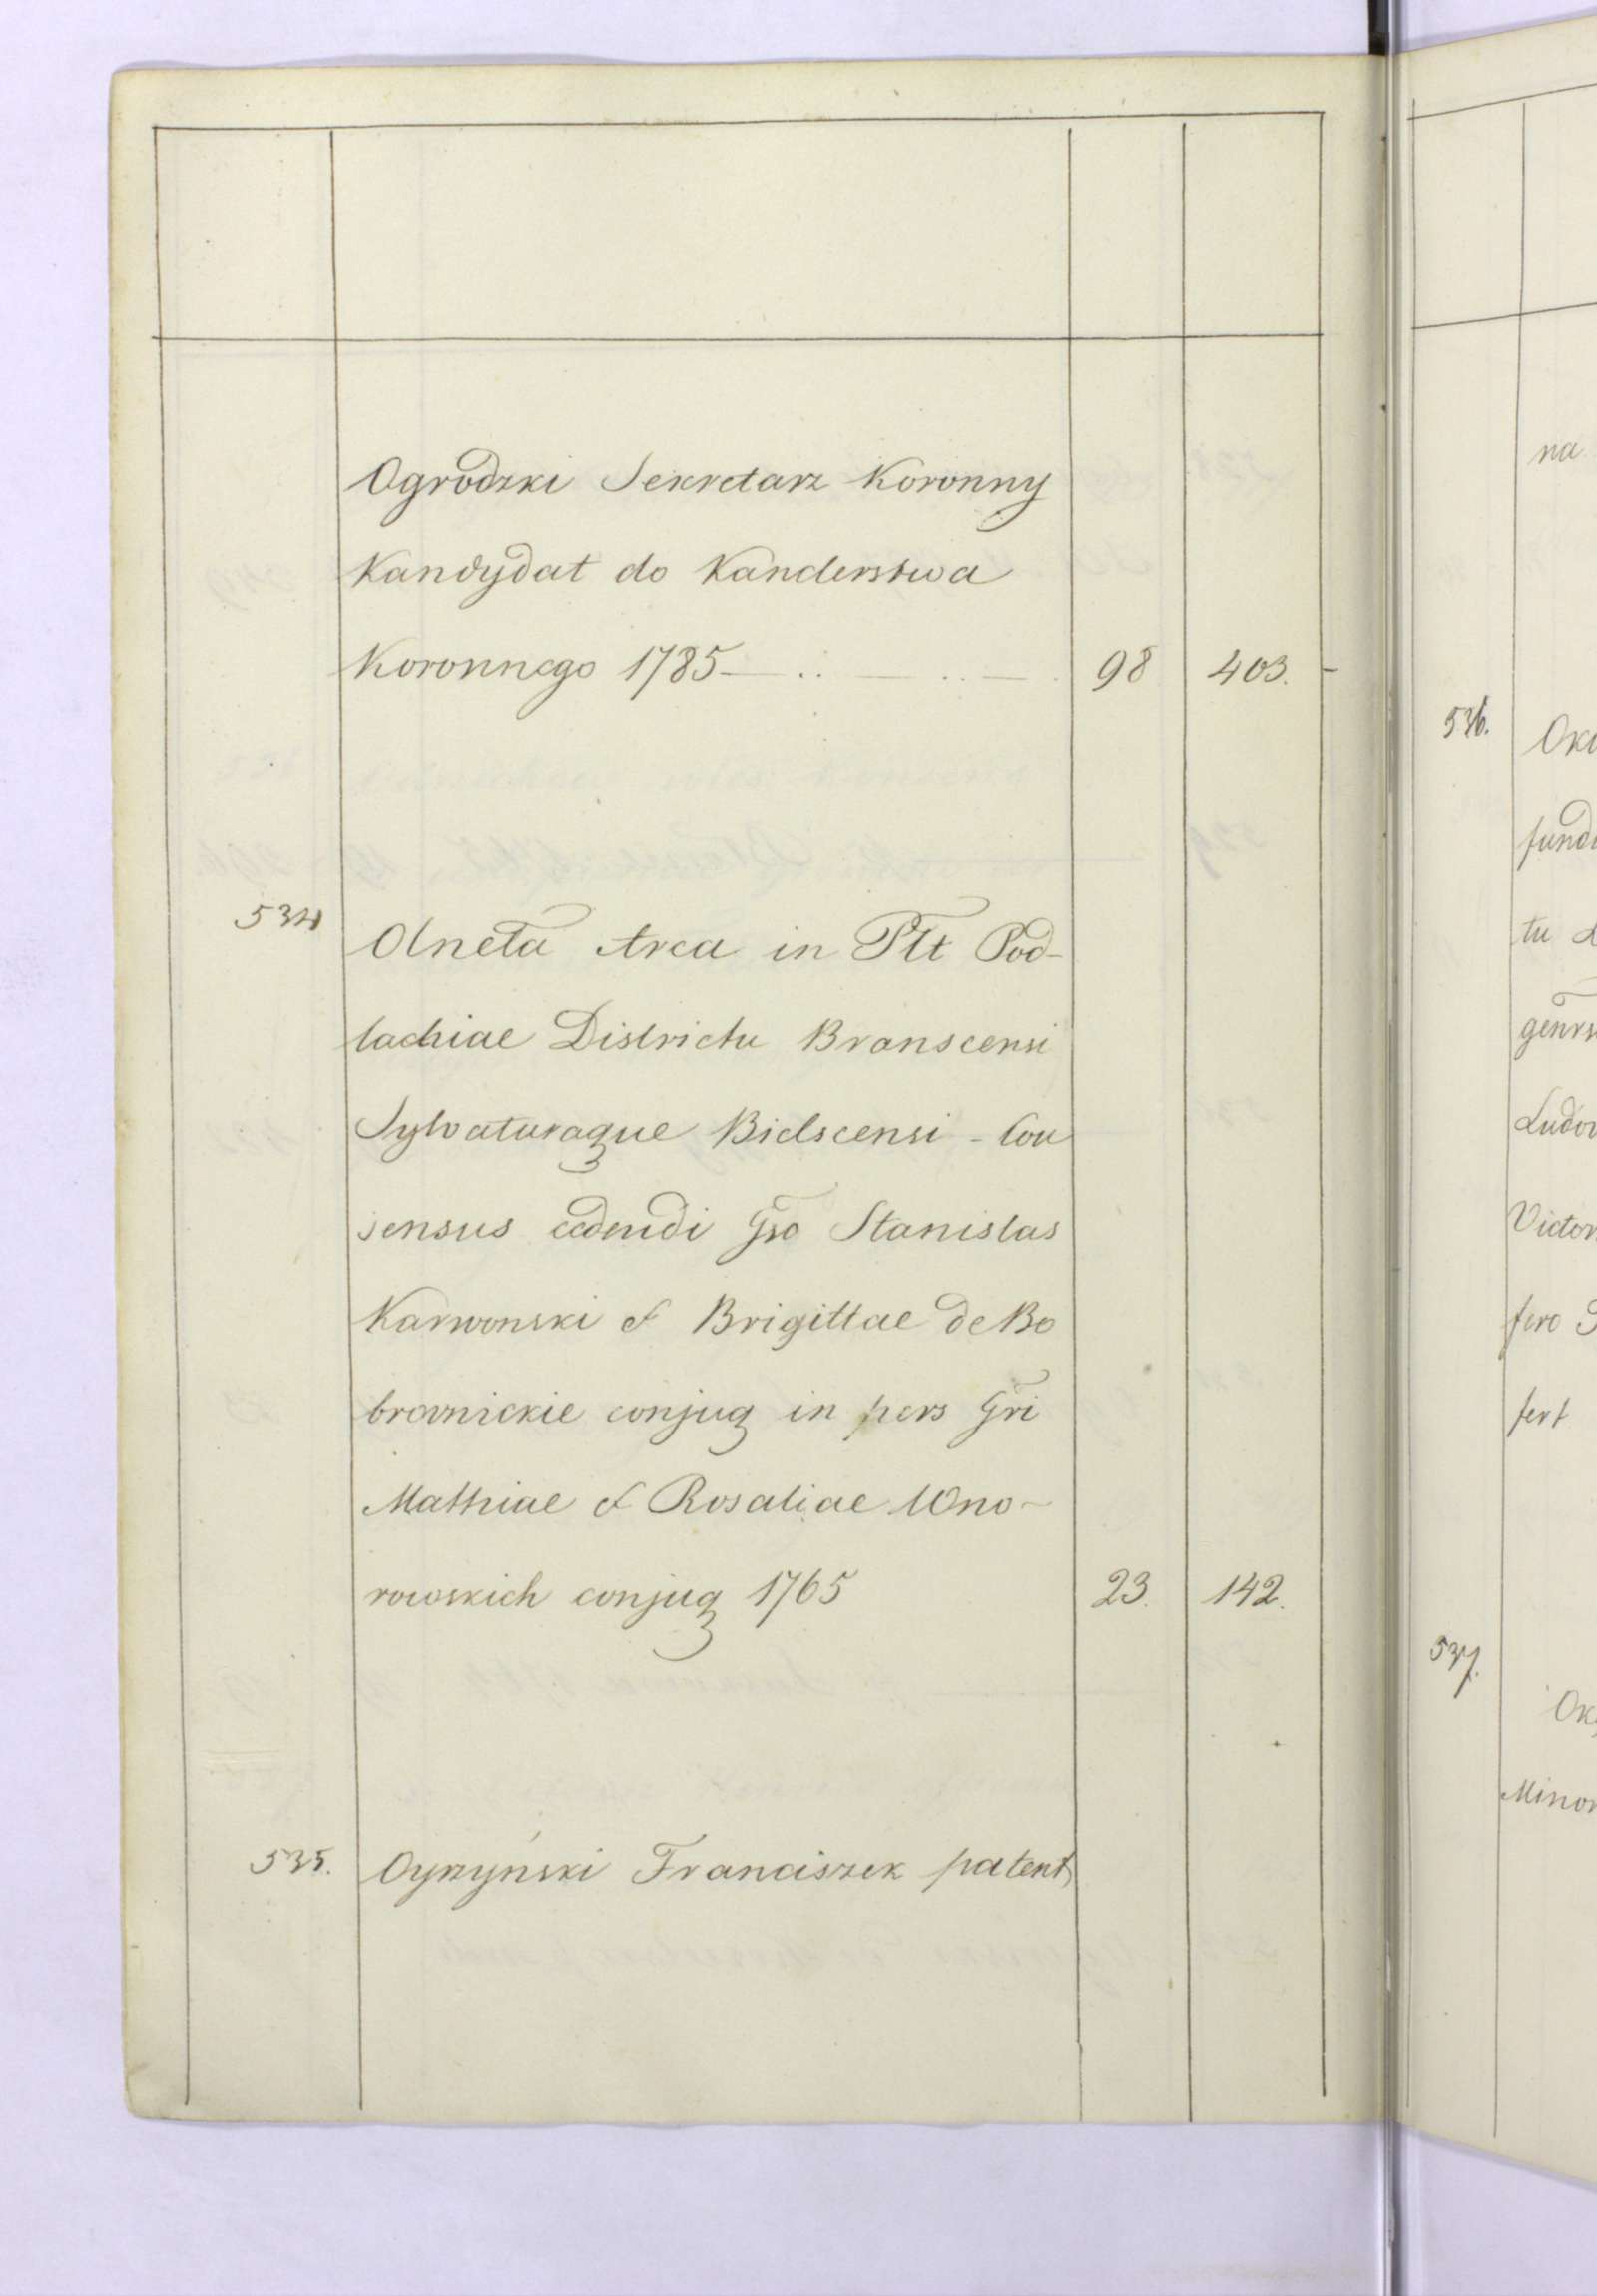 Ogrodzki Sekretarz Koronny
Kandydat do Kanderstwa
Koronnego 1785 — .. — .. — . 98 403. -
534 Olneta Area in Plt Pod-
lachiae Districtu Branscensi
Sylvaturaque Bielscensi - Con
sensus cedendi Gso Stanislas
Karwonski et Brigittae de Bo
brownickie conjug in pers Gri
Mathiae et Rosaliae Wno-
rowskich conjug 1765 23. 142.
535. Oyrzyński Franciszek patent
na
536. Oku
fundi
tu
genrs
Ludov
Victor
fero
fert
537.
Ok
Minor